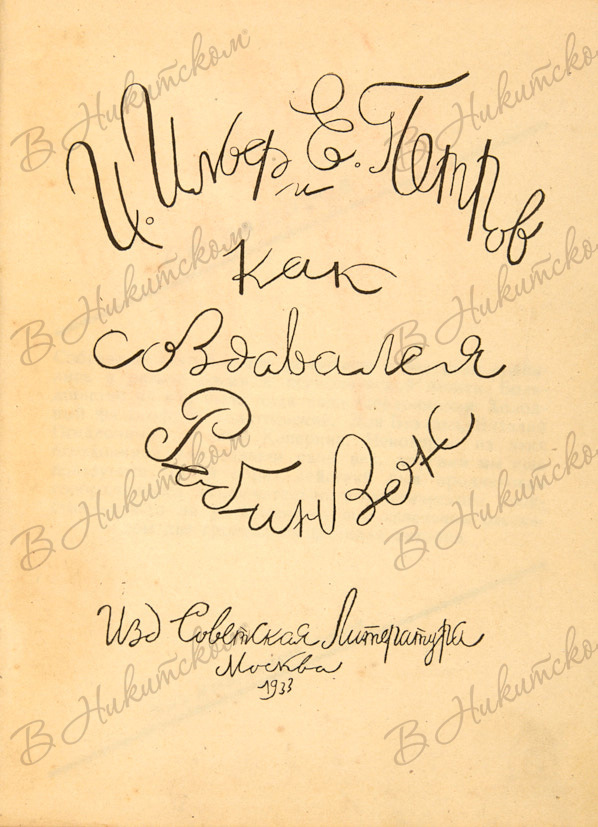 В Никитском
В Никитском
И. Ильф и Е. Петров
как
В Никитском
В Никитском
создавался
Робинзон
В Никитском
В Никитском
Изд Советская Литература
Москва
1933
В Никитском
В Никитском